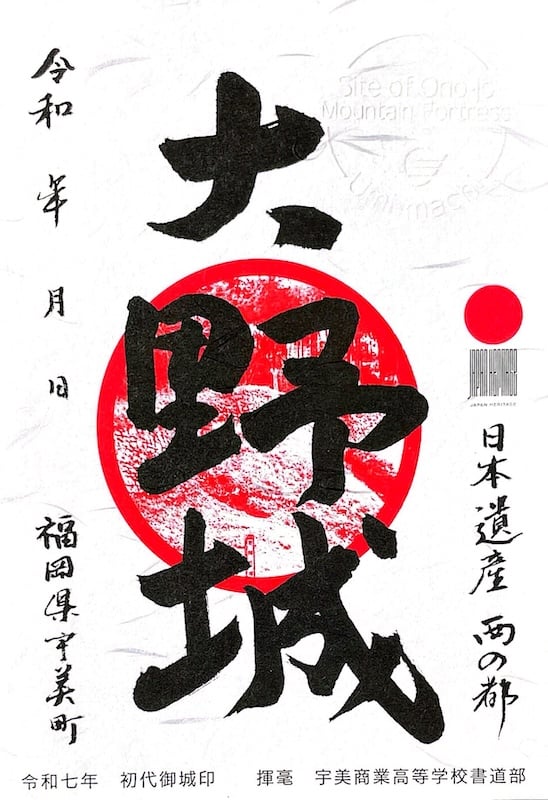 Site of Ōno-jō
Mountain Fortress
Umi-machi
JAPAN HERITAGE
日本遺産 西の都
大野城
令和 年 月 日
福岡県宇美町
令和七年 初代御城印 揮毫 宇美商業高等学校書道部